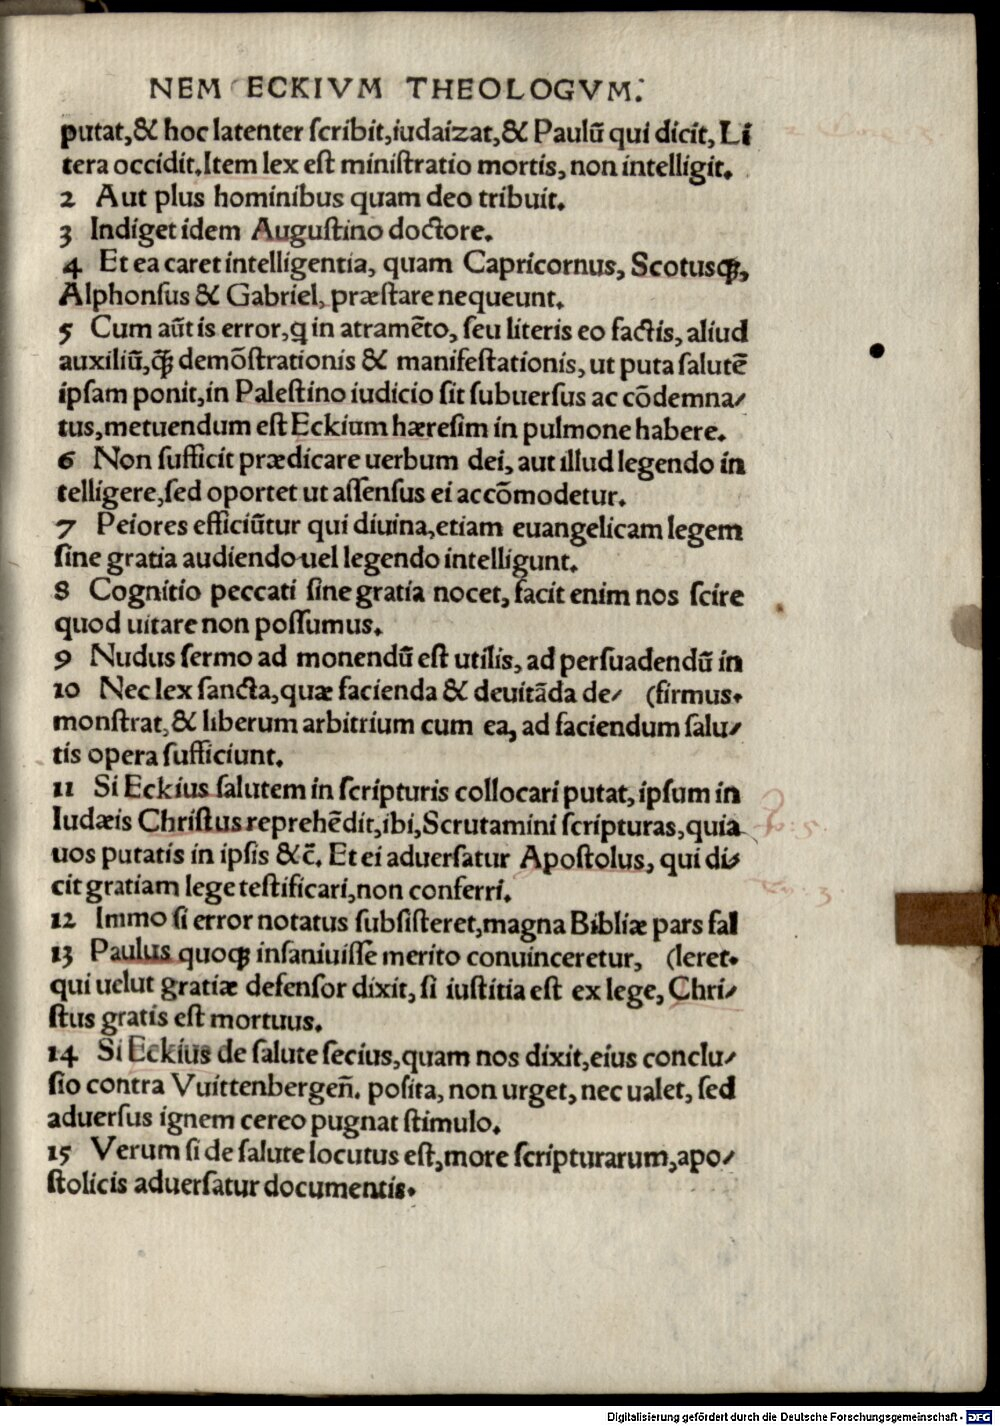 NEM ECKIVM THEOLOGVM.
putat,& hoc latenter ſcribit,iudaizat,& Paulū qui dicit, Li
tera occidit.Item lex eſt miniſtratio mortis, non intelligit.
2 Aut plus hominibus quam deo tribuit.
3 Indiget idem Auguſtino doctore.
4 Et ea caret intelligentia, quam Capricornus, Scotusq́ꝫ,
Alphonſus & Gabriel, præſtare nequeunt.
5 Cum aūt is error, ꝙ in atramēto, ſeu literis eo factis, aliud
auxiliū, q̄ꝫ demōſtrationis & manifeſtationis, ut puta ſalutē
ipſam ponit, in Paleſtino iudicio ſit ſubuerſus ac cōdemna/
tus,metuendum eſt Eckium hæreſim in pulmone habere.
6 Non ſufficit prædicare uerbum dei, aut illud legendo in
telligere,ſed oportet ut aſſenſus ei accōmodetur.
7 Peiores efficiūtur qui diuina,etiam euangelicam legem
ſine gratia audiendo uel legendo intelligunt.
8 Cognitio peccati ſine gratia nocet, facit enim nos ſcire
quod uitare non poſſumus.
9 Nudus ſermo ad monendū eſt utilis, ad perſuadendū in
10 Nec lex ſancta,quæ facienda & deuitāda de/ (firmus.
monſtrat,& liberum arbitrium cum ea, ad faciendum ſalu/
tis opera ſufficiunt.
11 Si Eckius ſalutem in ſcripturis collocari putat, ipſum in
Iudæis Chriſtus reprehēdit,ibi,Scrutamini ſcripturas,quia
uos putatis in ipſis &c̄. Et ei aduerſatur Apoſtolus, qui di/
cit gratiam lege teſtificari,non conferri.
12 Immo ſi error notatus ſubſiſteret,magna Bibliæ pars fal
13 Paulus quoqꝫ inſaniuiſſe merito conuinceretur, (leret.
qui uelut gratiæ defenſor dixit, ſi iuſtitia eſt ex lege, Chri/
ſtus gratis eſt mortuus.
14 Si Eckius de ſalute ſecius,quam nos dixit,eius conclu/
ſio contra Vuittenbergen̄. poſita, non urget, nec ualet, ſed
aduerſus ignem cereo pugnat ſtimulo.
15 Verum ſi de ſalute locutus eſt,more ſcripturarum,apo/
ſtolicis aduerſatur documentis.
Digitalisierung gefördert durch die Deutsche Forschungsgemeinschaft - DFG